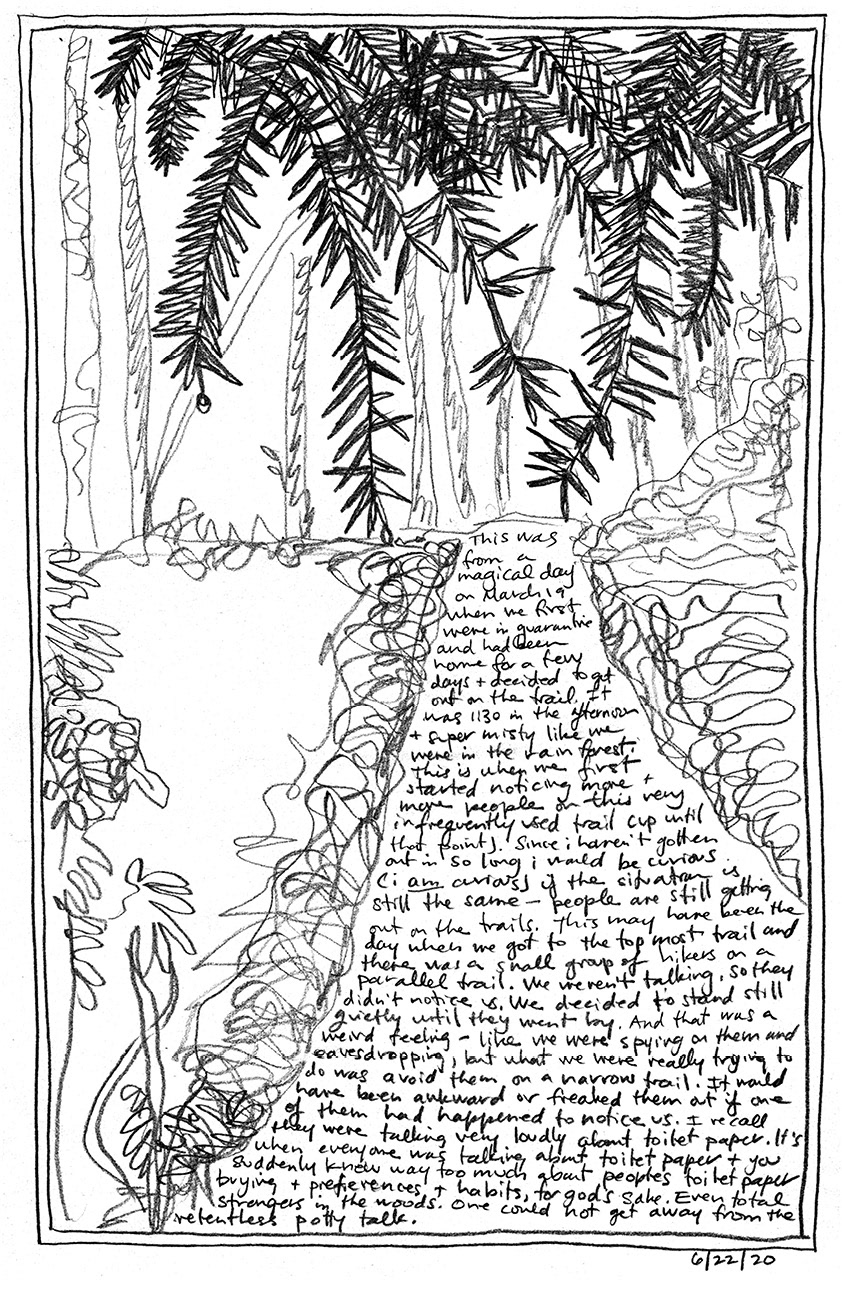 This was
from a
magical day
on March 19
when we first
were in quarantine
and had been
home for a few
days + decided to get
out on the trail. It
was 1130 in the afternoon
+ super misty like we
were in the rain forest.
This is when we first
started noticing more +
more people on this very
infrequently used trail (up until
that point). Since i haven't gotten
out in so long i would be curious
(i am curious) if the situation is
still the same – people are still getting
out on the trails. This may have been the
day when we got to the top most trail and
there was a small group of hikers on a
parallel trail. We weren't talking, so they
didn't notice us. We decided to stand still
quietly until they went by. And that was a
weird feeling – like we were spying on them and
eavesdropping, but what we were really trying to
do was avoid them on a narrow trail. It would
have been awkward or freaked them out if one
of them had happened to notice us. I recall
they were talking very loudly about toilet paper. It's
when everyone was talking about toilet paper + you
suddenly knew way too much about peoples toilet paper
buying + preferences + habits, for god's sake. Even total
strangers in the woods. One could not get away from the
relentless potty talk.
6/22/20